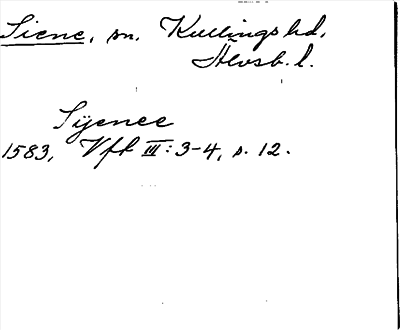 Siene, sn. Kullings hd,
Älvsb. l.
Sijenee
1583, Vft III: 3-4, s. 12.